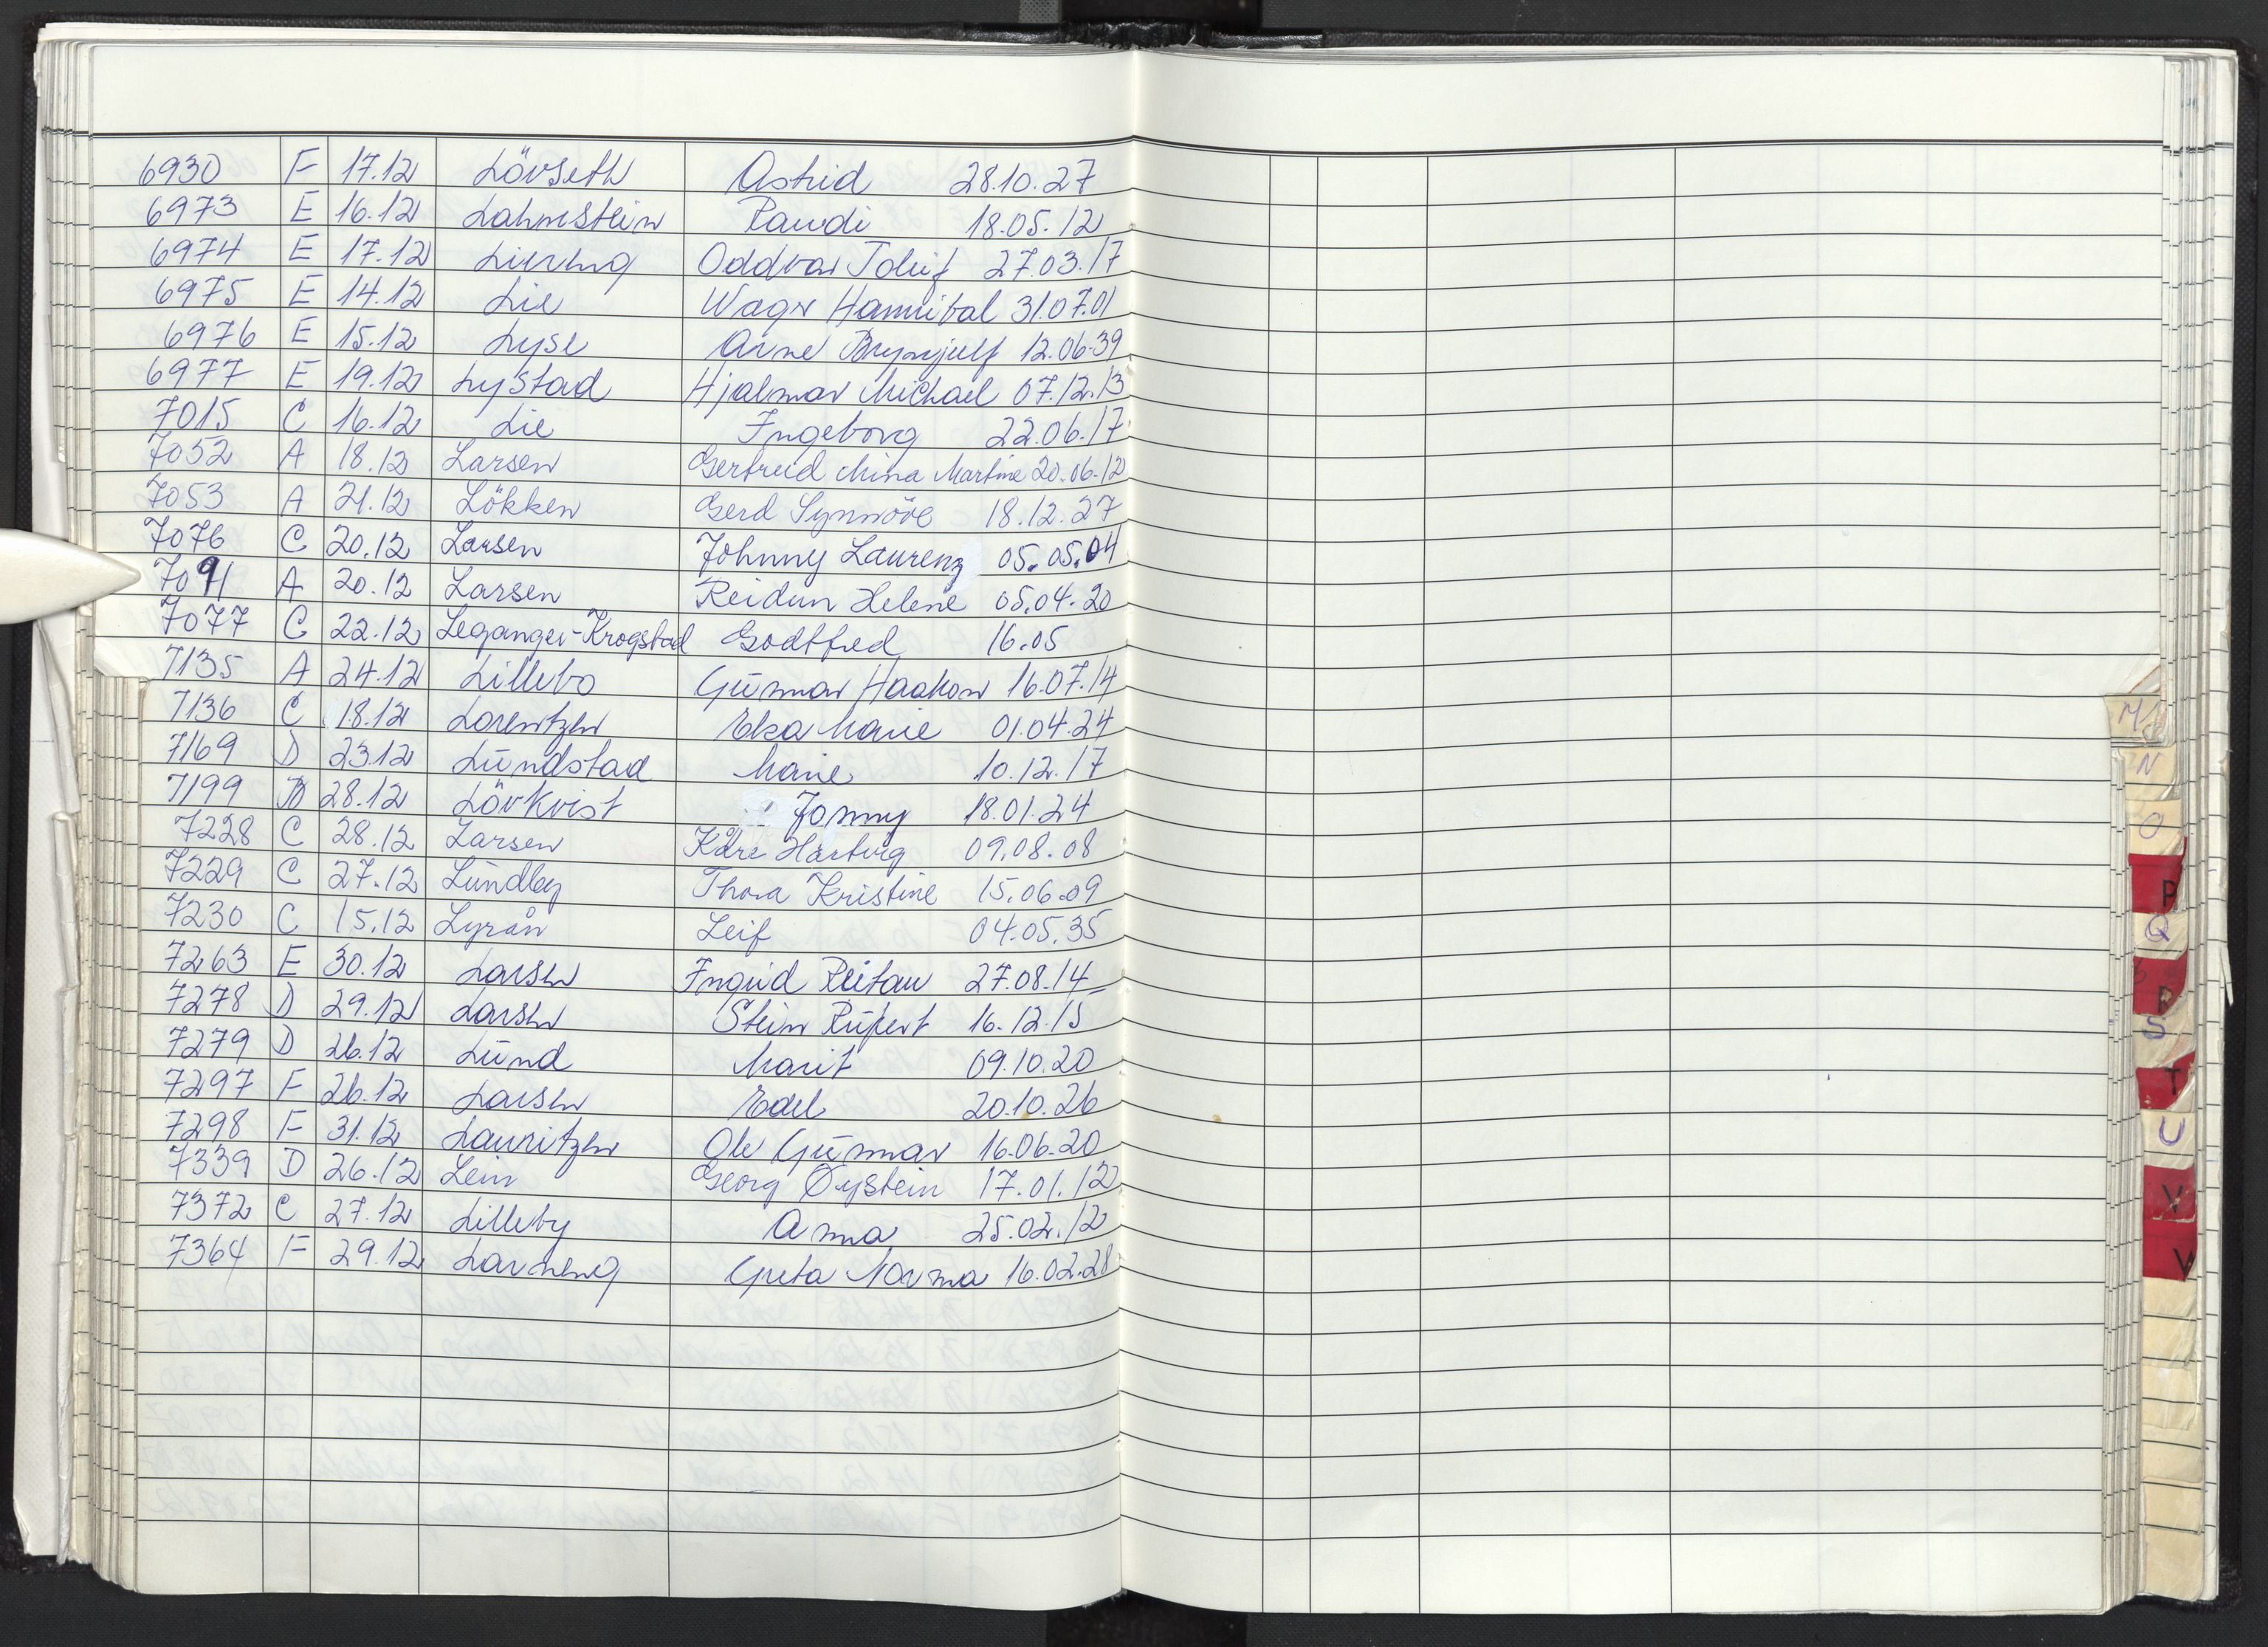 6930 F 17.12 Lövseth Astrid 28.10.27
6973 E 16.12 Lahnstein Randi 18.05.12
6974 E 17.12 Liereng Oddvar Tolleif 27.03.17
6975 E 14.12 Lie Wagn Hannibal 31.07.01
6976 E 15.12 Lyse Arne Brynjulf 12.06.39
6977 E 19.12 Lystad Hjalmar Michael 07.12.13
7015 C 16.12 Lie Ingeborg 22.06.17
7052 A 18.12 Larsen Gertrud Mina Martine 20.06.12
7053 A 21.12 Lökken Gerd Synnöve 18.12.27
7076 C 20.12 Larsen Johnny Laurenz 05.05.04
7091 A 20.12 Larsen Reidun Helene 05.04.20
7077 C 22.12 Leganger-Krogstad Godtfred 16.05
7135 A 24.12 Lillebo Gunnar Haakon 16.07.14
7136 C 18.12 Lorentzen Elsa Marie 01.04.24
7169 D 23.12 Lundstad Marie 10.12.17
7199 28.12 Lövkvist Jonny 18.01.24
7228 C 28.12 Larsen Kåre Hartvig 09.08.08
7229 C 27.12 Lundby Thora Kristine 15.06.09
7230 C 15.12 Lyrån Leif 04.05.35
7263 E 30.12 Larsen Ingrid Reitan 27.08.14
7278 D 29.12 Larsen Stein Rupert 16.12.15
7279 D 26.12 Lund Marit 09.10.20
7297 F 26.12 Larsen Edel 20.10.26
7298 F 31.12 Lauritzen Ole Gunnar 16.06.20
7339 D 26.12 Lein Georg Øystein 17.01.12
7372 C 27.12 Lilleby Anna 25.02.12
7364 F 29.12 Greta Norma 16.02.28
M
N
O
P
Q
R
S
T
U
V